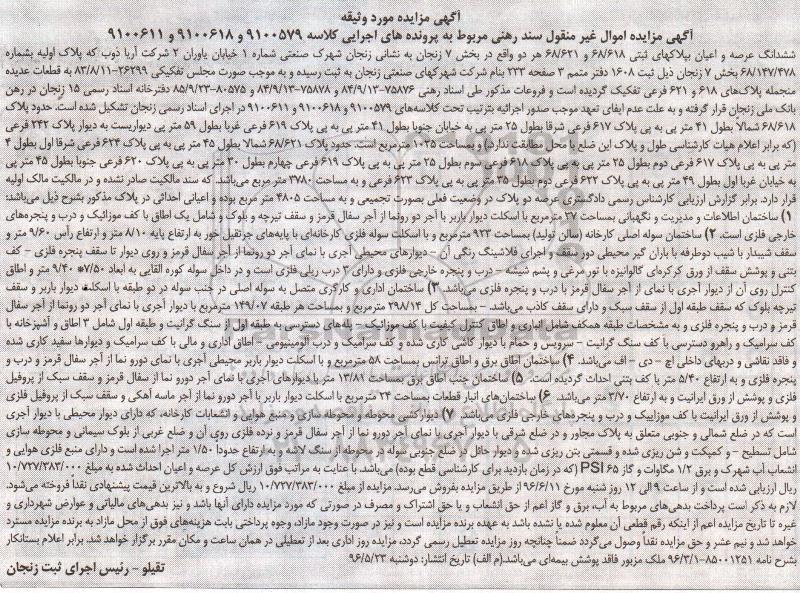 آگهی مزایده مورد وثیقه
آگهی مزایده اموال غیر منقول سند رهنی مربوط به پرونده های اجرایی کلاسه ۹۱۰۰۵۷۹ و ۹۱۰۰۶۱۸ و ۹۱۰۰۶۱۱
ششدانگ عرصه و اعیان بپلاکهای ثبتی ۶۸/۶۱۸ و ۶۸/۶۲۱ هر دو واقع در بخش ۷ زنجان به نشانی زنجان شهرک صنعتی شماره ۱ خیابان یاوران ۲ شرکت آریا ذوب که پلاک اولیه بشماره
۶۸/۱۴۷/۴۷۸ بخش ۷ زنجان ذیل ثبت ۱۶۰۸ دفتر متمم ۳ صفحه ۲۳۳ بنام شرکت شهرکهای صنعتی زنجان به ثبت رسیده و به موجب صورت مجلس تفکیکی ۲۶۲۹۹-۸۳/۸/۱۱ به قطعات عدیده
منجمله پلاک‌های ۶۱۸ و ۶۲۱ فرعی تفکیک گردیده است و فروعات مذکور طی اسناد رهنی ۷۵۸۷۶-۸۴/۹/۱۳ و ۷۵۸۷۸-۸۴/۹/۱۳ و ۸۰۵۷۵-۸۵/۹/۲۳ دفترخانه اسناد رسمی ۱۵ زنجان در رهن
بانک ملی زنجان قرار گرفته و به علت عدم ایفای تعهد موجب صدور اجرائیه بترتیب تحت کلاسه‌های ۹۱۰۰۵۷۹ و ۹۱۰۰۶۱۸ و ۹۱۰۰۶۱۱ در اجرای اسناد رسمی زنجان تشکیل شده است. حدود پلاک
۶۸/۶۱۸ شمالاً بطول ۴۱ متر پی به پی پلاک ۶۱۷ فرعی شرقا بطول ۲۵ متر پی به خیابان جنوبا بطول ۴۱ متر پی به پی پلاک ۶۱۹ فرعی غربا بطول ۵۹ متر پی دیواریست به دیوار پلاک ۲۴۲ فرعی
(که برابر اعلام هیات کارشناسی طول و پلاک این ضلع با محل مطابقت ندارد) و بمساحت ۱۰۲۵ مترمربع است. حدود پلاک ۶۸/۶۲۱ شمالا بطول ۴۵ متر پی به پی پلاک ۶۲۴ فرعی شرقا اول بطول ۴
متر پی به پی پلاک ۶۱۷ فرعی دوم بطول ۲۵ متر پی به پی پلاک ۶۱۸ فرعی سوم بطول ۲۵ متر پی به پی پلاک ۶۱۹ فرعی چهارم بطول ۳۰ متر پی به پی پلاک ۶۲۰ فرعی جنوبا بطول ۴۵ متر پی
به خیابان غربا اول بطول ۴۹ متر پی به پی پلاک ۶۲۲ فرعی دوم بطول ۳۵ متر پی به پی پلاک ۶۲۳ فرعی و به مساحت ۳۷۸۰ متر مربع می‌باشد. که سند مالکیت صادر نشده و در مالکیت مالک اولیه
قرار دارد. برابر گزارش ارزیابی کارشناس رسمی دادگستری عرصه دو پلاک در وضعیت فعلی بصورت تجمیعی و به مساحت ۴۸۰۵ متر مربع بوده و اعیانی احداثی در پلاک مذکور بشرح ذیل می‌باشد:
۱) ساختمان اطلاعات و مدیریت و نگهبانی بمساحت ۲۷ مترمربع با اسکلت دیوار باربر با آجر دو رونما از آجر سفال قرمز و سقف تیرچه و بلوک و شامل یک اطاق با کف موزائیک و درب و پنجره‌های
خارجی فلزی است. ۲) ساختمان سوله اصلی کارخانه (سالن تولید) بمساحت ۹۲۳ مترمربع و با اسکلت سوله فلزی کارخانه‌ای با پایه‌های جرثقیل خور به ارتفاع پایه ۸/۱۰ متر و ارتفاع رأس ۹/۶۰ متر و
سقف شیبدار با شیب دوطرفه با باران گیر محیطی دور سقف و اجرای فلاشینگ رنگی آن – دیوارهای محیطی آجری با نمای آجر دو رونما از آجر سفال قرمز و روی دیوار تا سقف پنجره فلزی – کف
بتنی و پوشش سقف از ورق کرکره‌ای گالوانیزه با تور مرغی و پشم شیشه – درب و پنجره خارجی فلزی و دارای ۳ درب ریلی فلزی است و در داخل سوله کوره القایی به ابعاد ۷/۵۰* ۹/۴۰ متر و اطاق
کنترل روی آن از دیوار آجری با نمای از آجر سفال قرمز با درب و پنجره فلزی می‌باشد. ۳) ساختمان اداری و کارگری متصل به سوله اصلی در جنب سوله در دو طبقه با اسکلت دیوار باربر و سقف
تیرچه بلوک که سقف طبقه اول از سقف سبک و دارای سقف کاذب می‌باشد. – بمساحت کل ۲۹۸/۱۴ مترمربع و بمساحت هر طبقه ۱۴۹/۰۷ مترمربع با دیوار آجری با نمای آجر دو رونما از آجر سفال
قرمز و درب و پنجره فلزی و به مشخصات طبقه همکف شامل انباری و اطاق کنترل کیفیت با کف موزائیک – پله‌های دسترسی به طبقه اول از سنگ گرانیت و طبقه اول شامل ۳ اطاق و آشپزخانه با
کف سرامیک و راهرو دسترسی با کف سنگ گرانیت – سرویس و حمام با دیوار کاشی کاری شده و کف سرامیک و درب آلومینیومی – اطاق اداری و مالی با کف سرامیک و دیوارها سفید کاری شده
و فاقد نقاشی و دربهای داخلی اچ – دی – اف می‌باشد. ۴) ساختمان اطاق برق و اطاق ترانس بمساحت ۵۸ مترمربع و با اسکلت دیوار باربر محیطی آجری با نمای دورو نما از آجر سفال قرمز و درب و
پنجره فلزی و به ارتفاع ۵/۴۰ متر با کف بتنی احداث گردیده است. ۵) ساختمان جنب اطاق برق بمساحت ۱۳/۸۱ متر با دیوارهای آجری با نمای آجر دورو نما از سفال قرمز و سقف سبک از پروفیل
فلزی و پوشش از ورق ایرانیت و به ارتفاع ۳/۷۰ متر می‌باشد. ۶) ساختمان‌های انبار قطعات بمساحت ۲۴ مترمربع با اسکلت دیوار باربر با آجر دو رونما از آجر ماسه آهکی و سقف سبک از پروفیل فلزی
و پوشش از ورق ایرانیت با کف موزاییک و درب و پنجره‌های خارجی فلزی می‌باشد. ۷) دیوارکشی محوطه و محوطه سازی و منبع هوایی و انشعابات کارخانه، که دارای دیوار محیطی با دیوار آجری
است که در ضلع شمالی و جنوبی متعلق به پلاک مجاور و در ضلع شرقی با دیوار آجری با نمای آجر دورو نما از آجر سفال قرمز و نرده فلزی روی آن و ضلع غربی از بلوک سیمانی و محوطه سازی
شامل تسطیح – و کمپکت و شن ریزی شده و قسمتی بتن ریزی شده و دیوار حائل در ضلع جنوبی سوله و محوطه از سنگ لاشه و به ارتفاع حدودا ۱/۵۰ متر اجرا شده است و دارای منبع فلزی هوایی و
انشعاب آب شهرک و برق ۱/۲ مگاوات و گاز ۶۵ PSI (که در زمان بازدید برای کارشناسی قطع بوده) می‌باشد. با عنایت به مراتب فوق ارزش کل عرصه و اعیان احداث شده به مبلغ ۱۰/۷۲۷/۳۸۳/۰۰۰
ریال ارزیابی شده است و از ساعت ۹ الی ۱۲ روز شنبه مورخ ۹۶/۶/۱۱ از طریق مزایده بفروش می‌رسد. مزایده از مبلغ ۱۰/۷۲۷/۳۸۳/۰۰۰ ریال شروع و به بالاترین قیمت پیشنهادی نقداً فروخته می‌شود.
لازم به ذکر است پرداخت بدهی‌های مربوط به آب، برق و گاز اعم از حق انشعاب و یا حق اشتراک و مصرف در صورتی که مورد مزایده دارای آنها باشد و نیز بدهی‌های مالیاتی و عوارض شهرداری و
غیره تا تاریخ مزایده اعم از اینکه رقم قطعی آن معلوم شده یا نشده باشد به عهده برنده مزایده است و نیز در صورت وجود مازاد، وجوه پرداختی بابت هزینه‌های فوق از محل مازاد به برنده مزایده مسترد
خواهد شد و نیم عشر و حق مزایده نقداً وصول می‌گردد ضمناً چنانچه روز مزایده تعطیل رسمی گردد، مزایده روز اداری بعد از تعطیلی در همان ساعت و مکان مقرر برگزار خواهد شد. برابر اعلام بستانکار
بشرح نامه ۸۵۰۰۱۲۵۱-۹۶/۳/۱ ملک مزبور فاقد پوشش بیمه‌ای می‌باشد.(م الف) تاریخ انتشار: دوشنبه ۹۶/۵/۲۳
تقیلو – رئیس اجرای ثبت زنجان